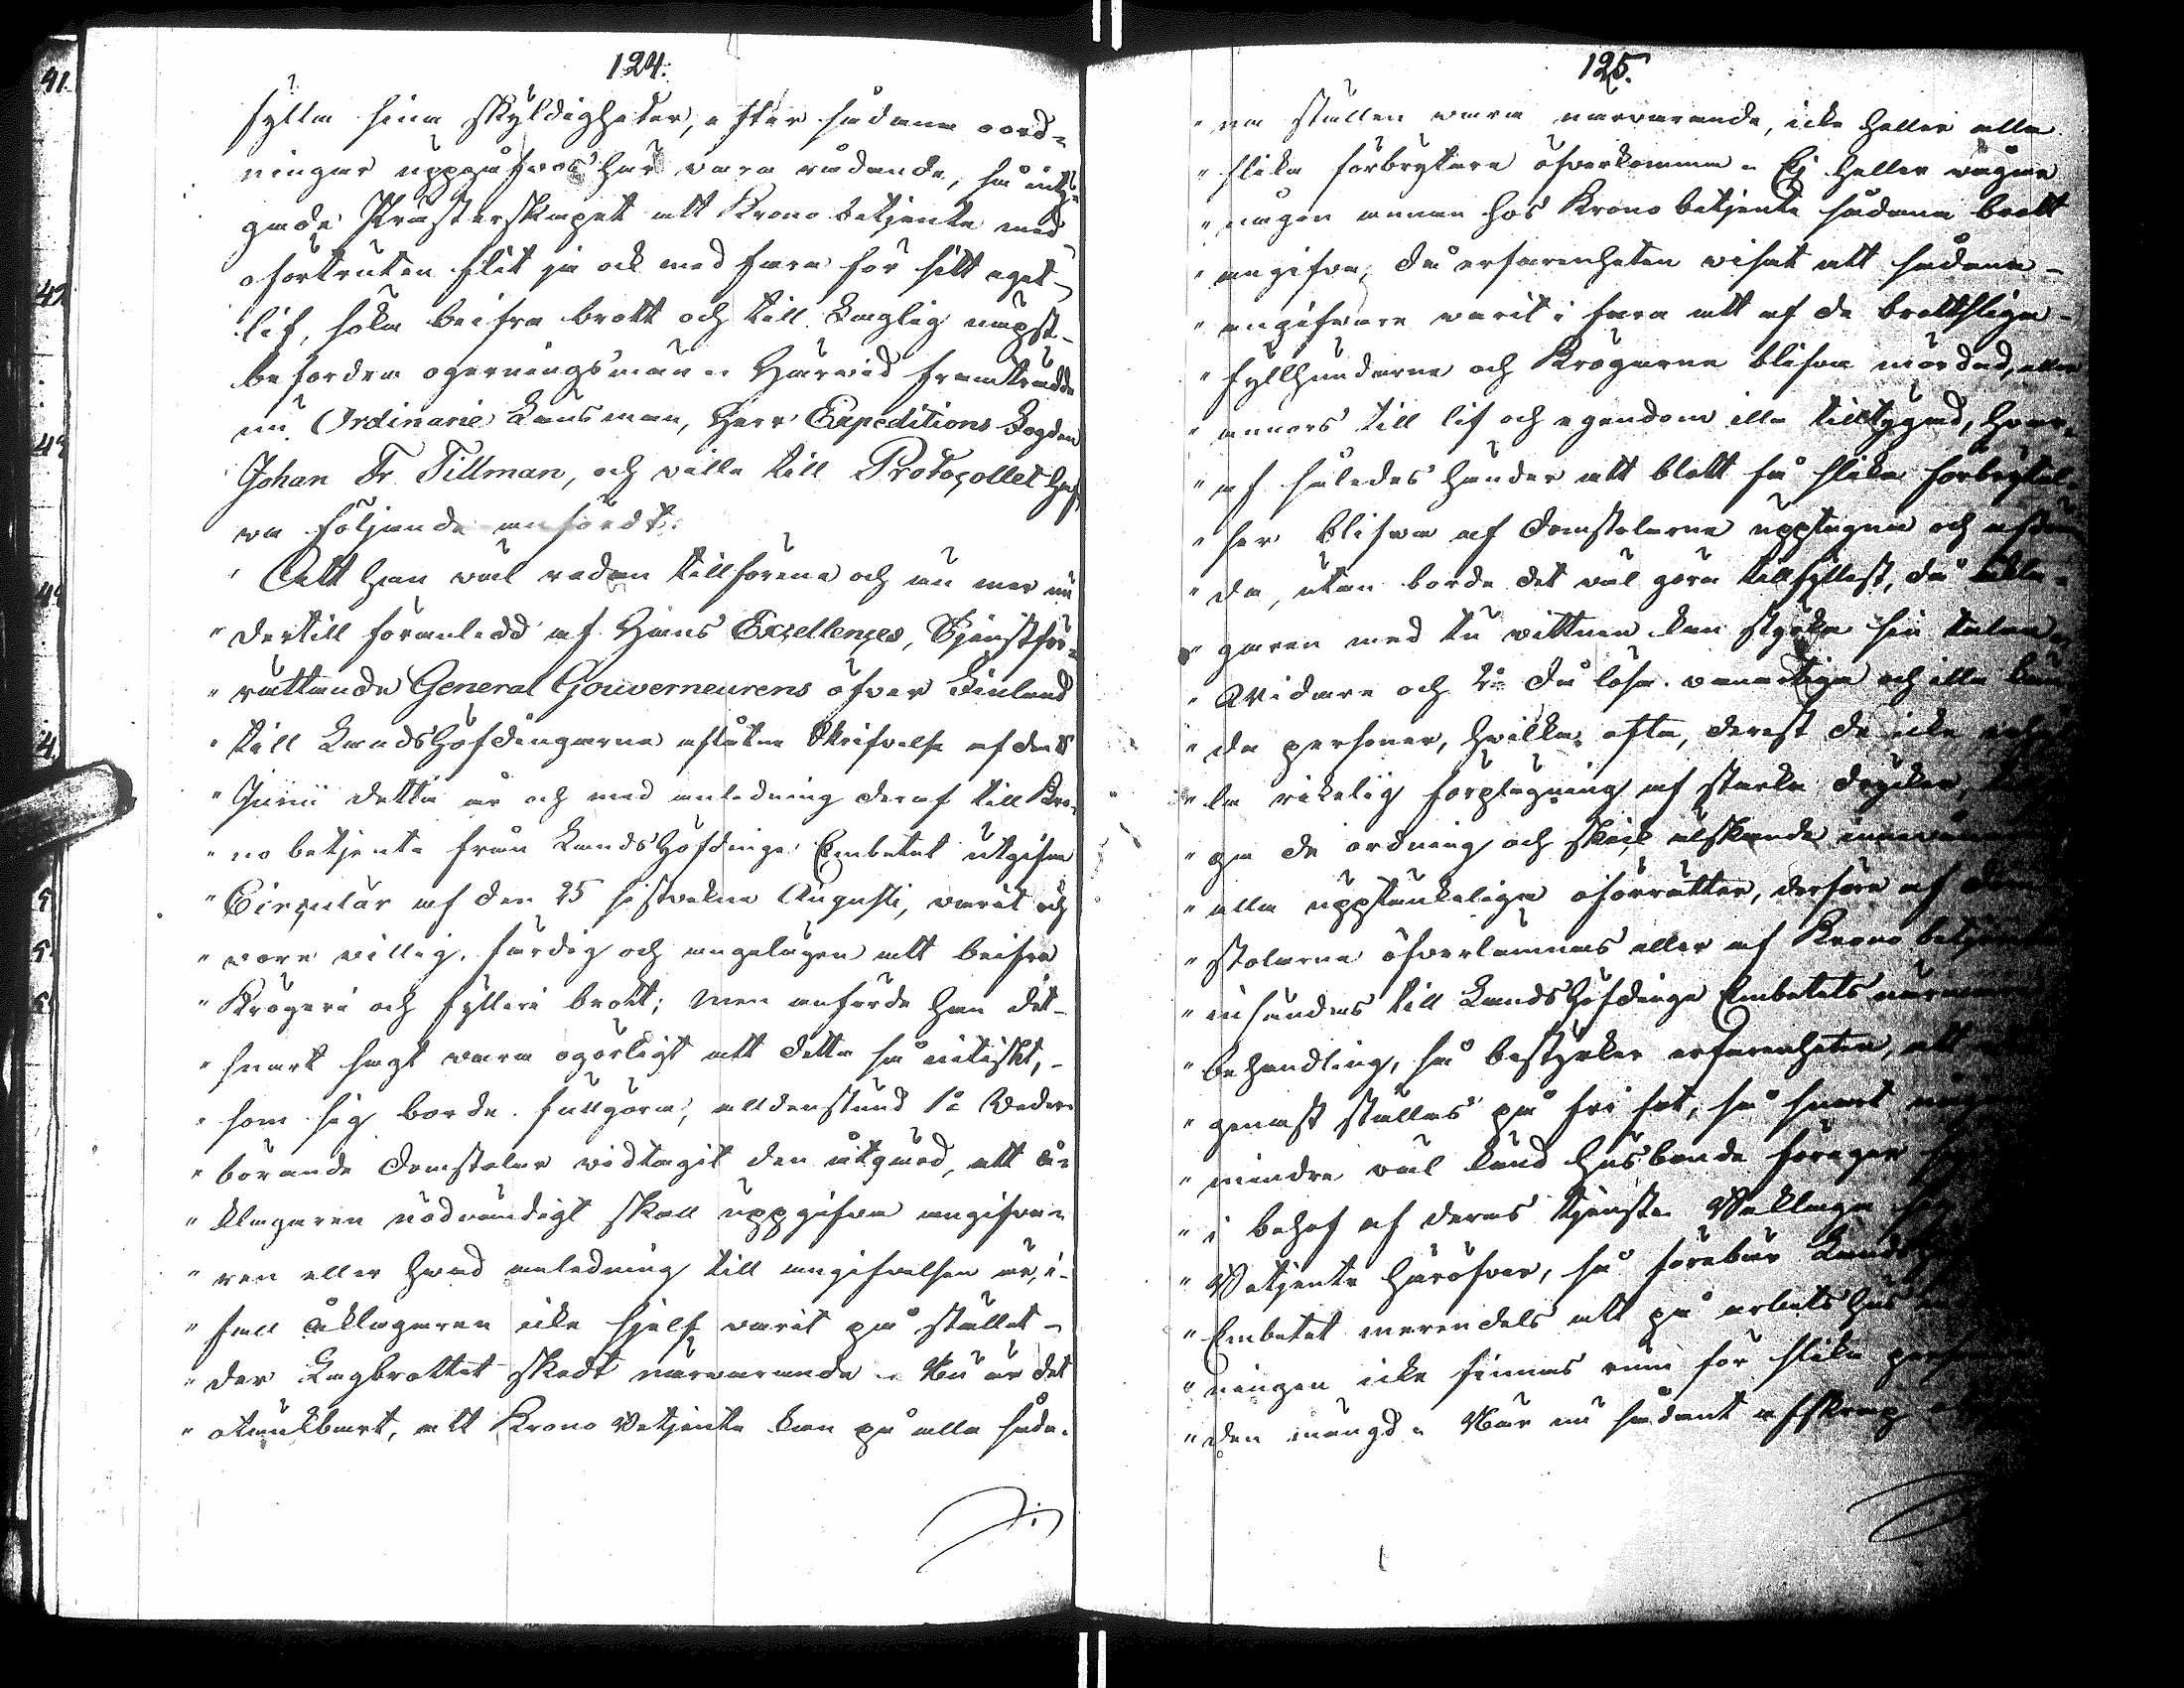 124.
fylla sina skyldigheter, efter sådana oord-
ningar uppgåfvos här vara rådande, så
gade Prästerskapet att Krono betjente med
oförtruten flit ja ock med fara för sitt eget
lif, söka beifra brott och till Laglig näpst
befordra ogerningsmän. Härvid framträdde
nu Ordinarie Länsman, Herr Expeditions Fogden
Johan Fr. Tillman, och ville till Protocollet haf-
va följande anfördt:
Att han väl redan tillförene och än mer nu
" dertill föranledd af Hans Excellences, Tjenstför-
" rättande General Gouverneurens öfver Finland
" till Landshöfdingarne aflåtne Skrifvelse af den 8
" Junii detta år och med anledning deraf till Kro-
" no betjente från Landshöfdinge Embetet utgifne
" Circulär af den 25 sistvekne Augusti, varit och
" vore villig, färdig och angelägen att beifra
" Krögeri och fylleri brott; men anförde han det
" snart sagt vara ogörligt att detta så nitiskt,
" som sig borde fullgöra, alldenstund 1o Veder-
" börande Domstolar vidtagit den åtgärd, att å-
" klagaren nödvändigt skall uppgifva angifva-
" ren eller hvad anledning till angifvelsen är, i
" fall åklagaren icke sjelf varit på stället
" der Lagbrottet skedt närvarande. Nu är det
" otänkbart, att Krono Betjente kan på alla såda-
125.
" na ställen vara närvarande, icke heller alla
" slika förbrytare öfverkomma. Ej heller vågar
" någon annan hos Krono betjente sådana brott
" angifva, då erfarenheten visat att sådana
" angifvare varit i fara att af de brottsliga
" fyllhundarne och Krögarne blifva mördad, eller
" annors till lif och egendom illa tilltygad, hvar-
" af således händer att blott få slika förbrytel-
" ser blifva af Domstolarne upptagna och
" da, utan borde det väl göra tillfyllest, då åkla-
" garen med två vittnen kan styrka sin talan
" Vidare och 2o då lösa vanartiga och illa
" da personer, hvilka ofta, derest de icke
" la rikelig förplägning af starka drycker,
" ga de ordning och skick älskande
" alla upptänkeliga oförrätter, derföre af Dom-
" stolarne öfverlemnas eller af Krono
" insändes till Landshöfdinge Embetets
" behandling, så bestyrker erfarenheten, att
" genast ställas på fri fot, så snart
" mindre väl känd husbonde föreger
" i behof af deras tjenst. Beklaga
" Betjente häröfver, så förebär Lands
" Embetet merendels att på arbetshus
" ningen icke finnas rum för slika
" den mängd. När nu sådant afskrap